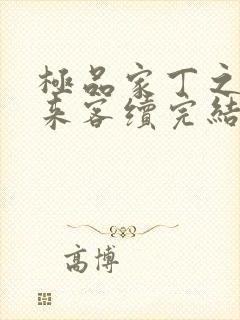 極品家丁之
來客續完結
高博